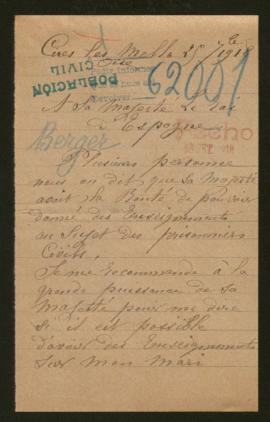 Cires Les Mello 25 / 1918
Oise
POBLACIÓN
CIVIL
62001
A Sa Majesté Le Roi
d Espagne
Hecho
Berger
Plusieurs personne
nous on dit que Sa Majesté
avait la Bonté de pouvoir
donné des Enseignements
au Sujet des prisonniers
Civils.
Je me recommende à la
grande puissance de Sa
Majesté pour me dire
si il est possible
d'avoir des Enseignements
sur mon Mari